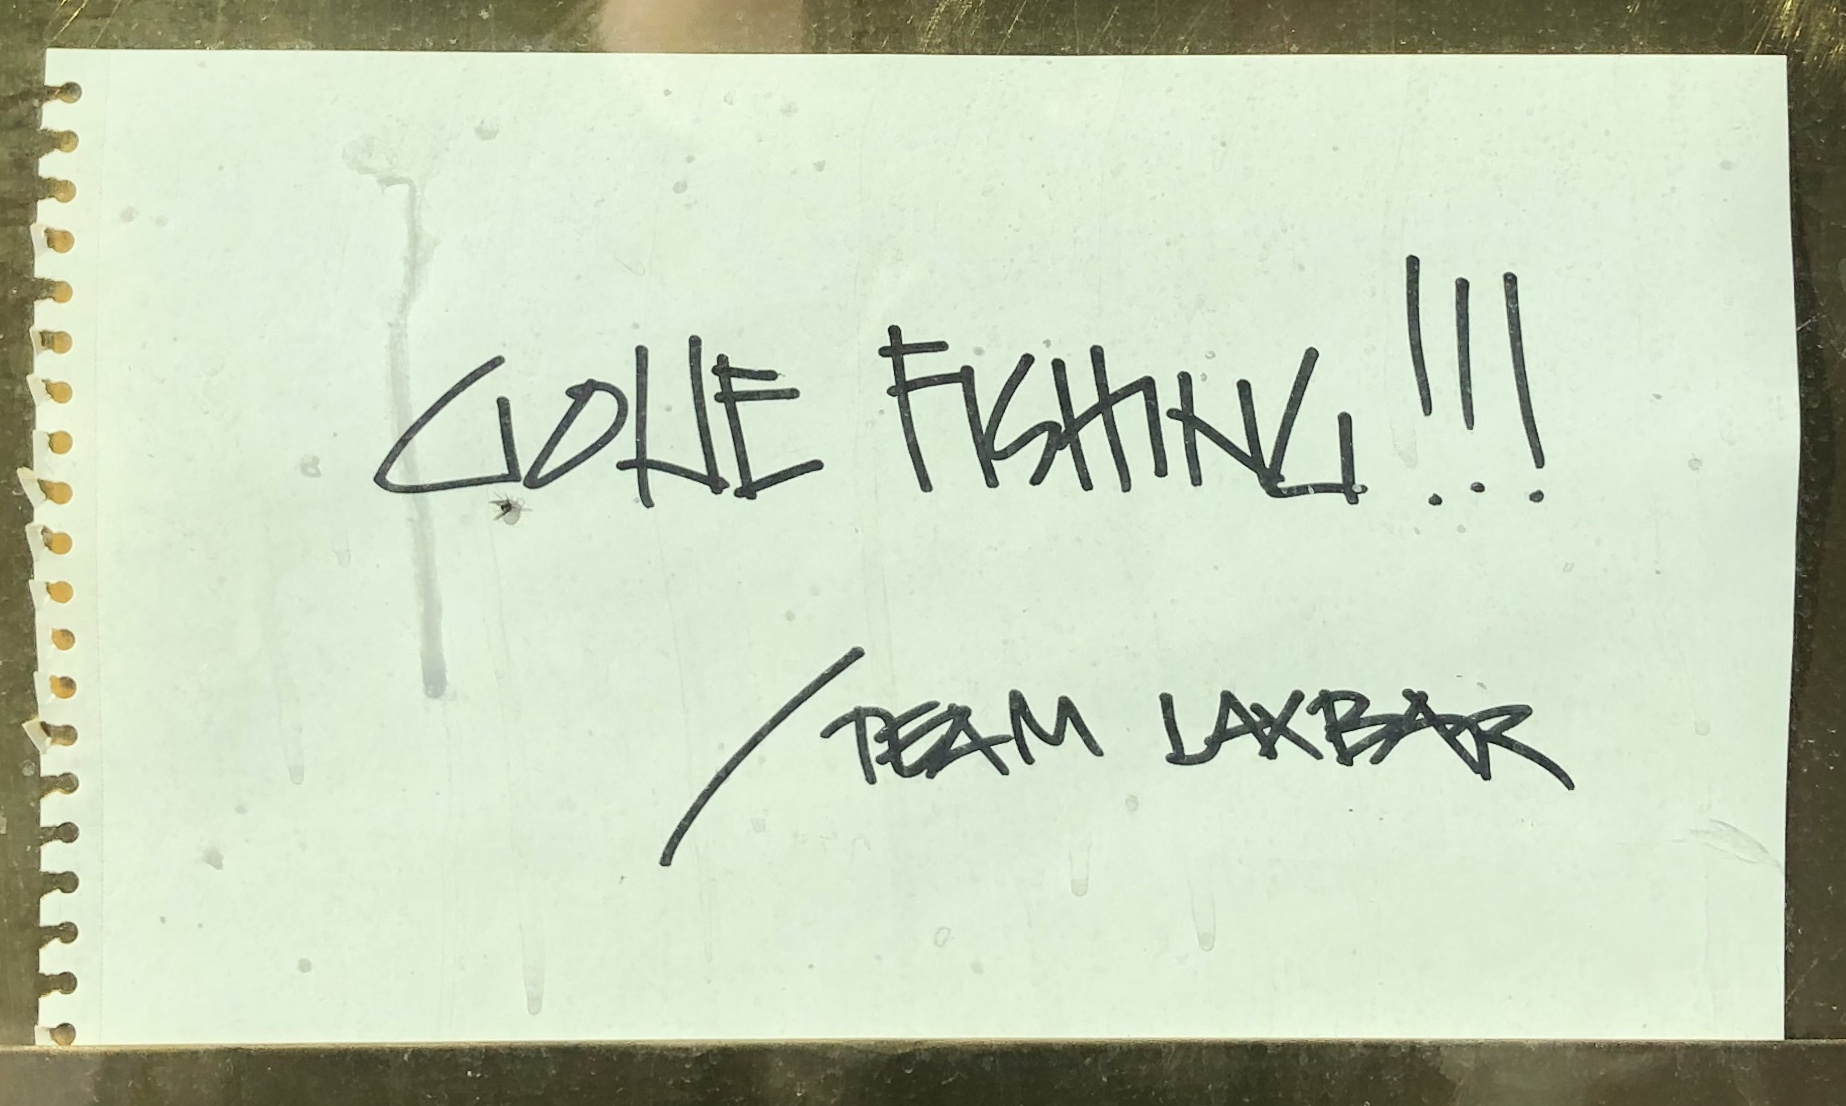 GONE FISHING!!!
/TEAM LAXBAR